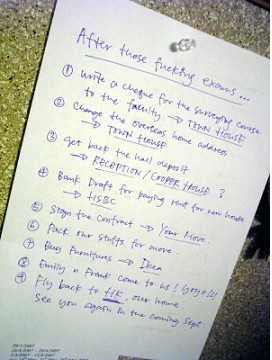 After those fucking exams...
① Write a cheque for the surveying course
to the faculty → TOWN HOUSE
② Change the overseas home address
→ TOWN HOUSE
③ Get back the hall deposit
→ RECEPTION / COOPER HOUSE?
④ Bank Draft for paying rent for new house
→ HSBC
⑤ Sign the contract → Your Move
⑥ Pack our stuffs for move.
⑦ Buy Furnitures → Ikea
⑧ Emily n Frank come to us!
⑨ Fly back to HK, our home
See you again in the coming Sept.